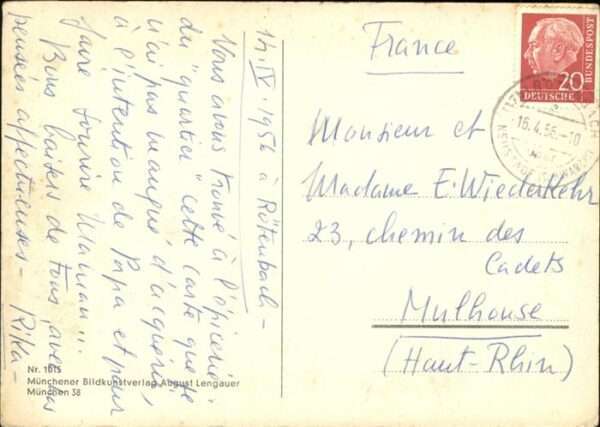 14.IV.1956 à Rötenbach -
Vous avons trouvé à l'épicerie
du "quartier" cette carte que je
n'ai pas manqué d'acquérir,
à l'intention de Papa et pour
faire sourire Maman!!
Bons baisers de tous, avec nos
pensées affectueuses - Rika -
Nr. 1015
Münchener Bildkunstverlag August Lengauer
München 38
France
DEUTSCHE
BUNDESPOST
20
16.4.56-10
Monsieur et
Madame E. Wiederkehr
23, chemin des
Cadets
Mulhouse
(Haut-Rhin)